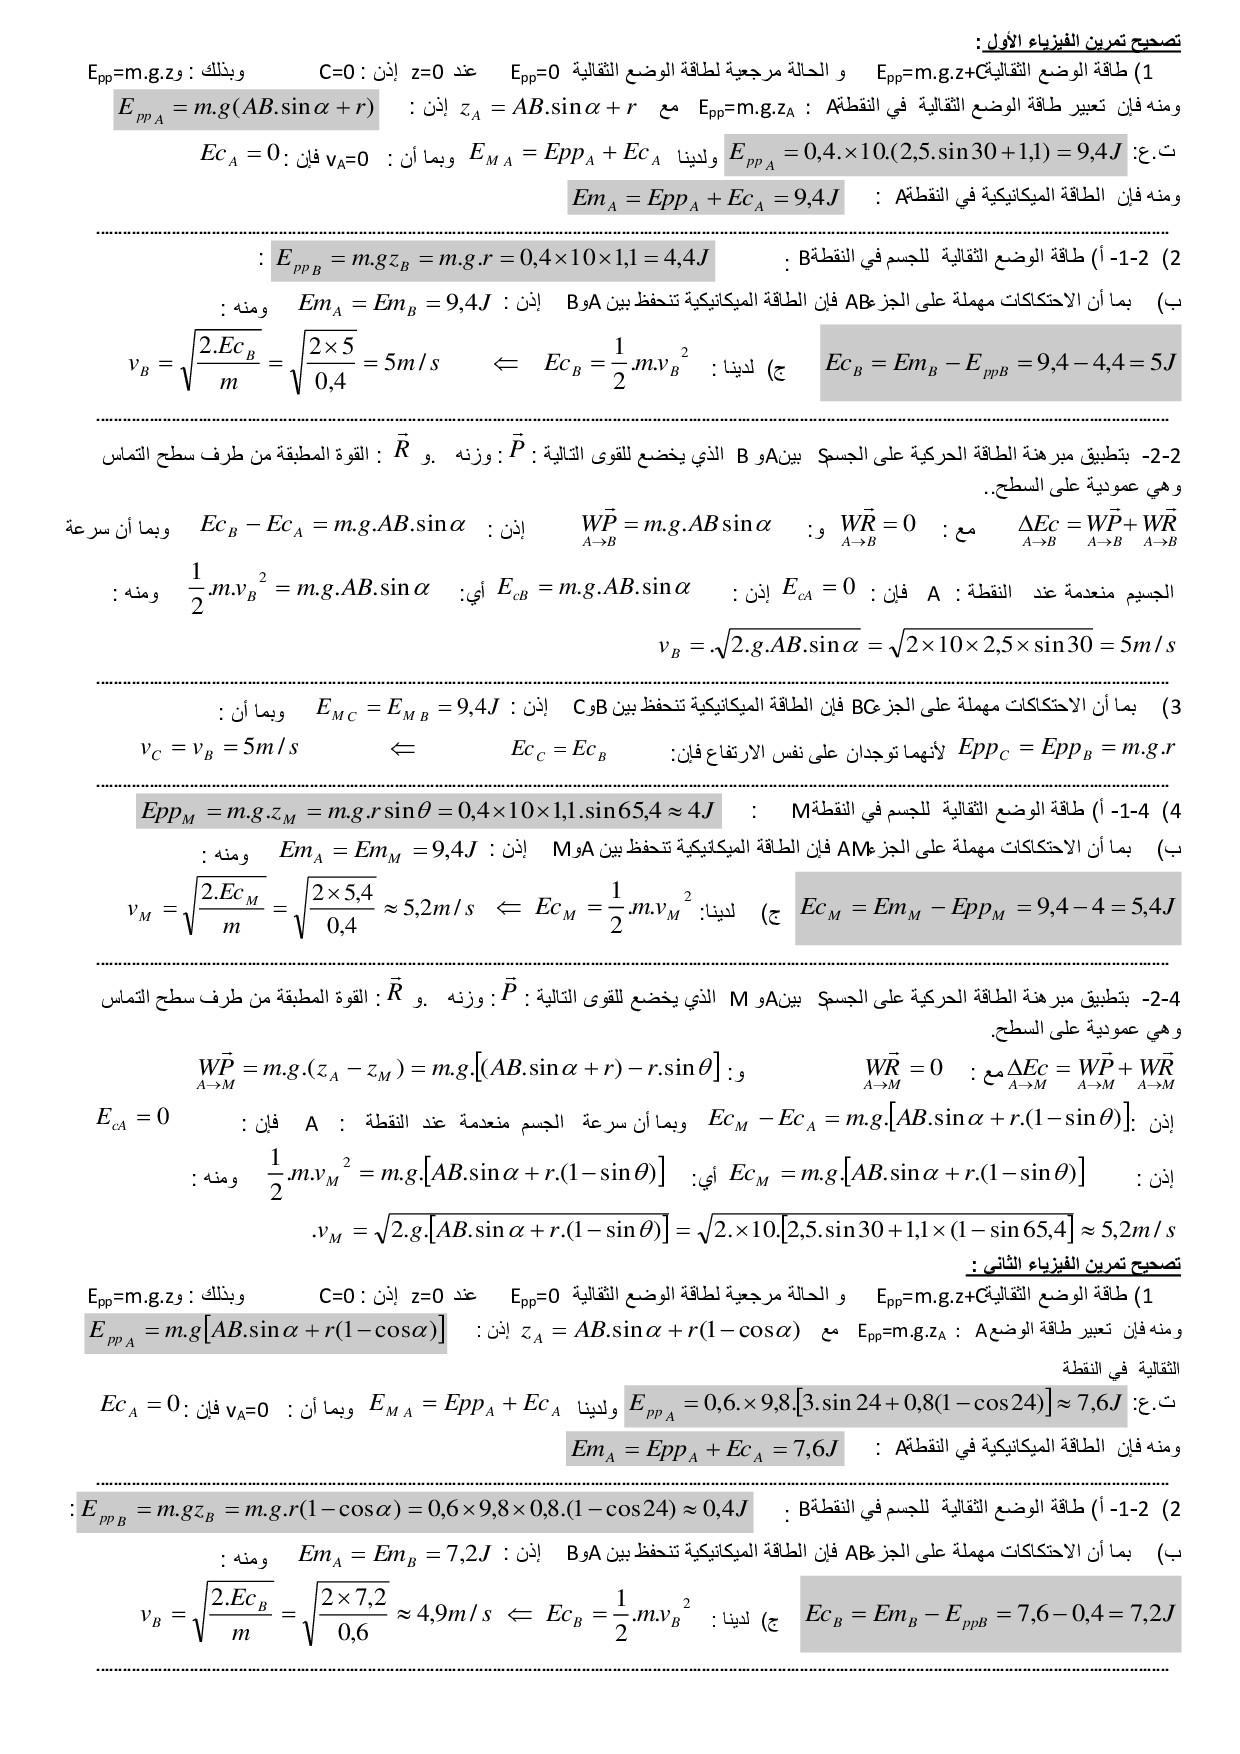 تصحيح تمرين الفيزياء الأول :
1) طاقة الوضع الثقالية Epp=m.g.z+C و الحالة مرجعية لطاقة الوضع الثقالية Epp=0 عند z=0 إذن : C=0 وبذلك : و Epp=m.g.z
ومنه فإن تعبير طاقة الوضع الثقالية في النقطة A : Epp=m.g.zA مع z_A = AB.sinα + r إذن : E_ppA = m.g(AB.sinα + r)
ت.ع: E_ppA = 0,4.×10.(2,5.sin30+1,1) = 9,4J ولدينا E_MA = Epp_A + Ec_A وبما أن : vA=0 فإن : Ec_A = 0
ومنه فإن الطاقة الميكانيكية في النقطة A : Em_A = Epp_A + Ec_A = 9,4J
2) 1-2- أ) طاقة الوضع الثقالية للجسم في النقطة B : E_ppB = m.gz_B = m.g.r = 0,4×10×1,1 = 4,4J :
ب) بما أن الاحتكاكات مهملة على الجزء AB فإن الطاقة الميكانيكية تنحفظ بين A و B إذن : Em_A = Em_B = 9,4J ومنه :
Ec_B = Em_B − E_ppB = 9,4 − 4,4 = 5J ج) لدينا : Ec_B = 1/2 .m.v_B² ⇐ v_B = √(2.Ec_B/m) = √(2×5/0,4) = 5m/s
2-2- بتطبيق مبرهنة الطاقة الحركية على الجسم S بين A و B الذي يخضع للقوى التالية : P⃗ : وزنه .و R⃗ : القوة المطبقة من طرف سطح التماس
وهي عمودية على السطح..
ΔEc (A→B) = WP⃗ (A→B) + WR⃗ (A→B) مع : WR⃗ (A→B) = 0 و: WP⃗ (A→B) = m.g.AB sinα إذن : Ec_B − Ec_A = m.g.AB.sinα وبما أن سرعة
الجسيم منعدمة عند النقطة : A فإن : E_cA = 0 إذن : E_cB = m.g.AB.sinα أي: 1/2 .m.v_B² = m.g.AB.sinα ومنه :
v_B = .√(2.g.AB.sinα) = √(2×10×2,5×sin30) = 5m/s
3) بما أن الاحتكاكات مهملة على الجزء BC فإن الطاقة الميكانيكية تنحفظ بين B و C إذن : E_MC = E_MB = 9,4J وبما أن :
Epp_C = Epp_B = m.g.r لأنهما توجدان على نفس الارتفاع فإن: Ec_C = Ec_B ⇐ v_C = v_B = 5m/s
4) 1-4- أ) طاقة الوضع الثقالية للجسم في النقطة M : Epp_M = m.g.z_M = m.g.r sinθ = 0,4×10×1,1.sin65,4 ≈ 4J
ب) بما أن الاحتكاكات مهملة على الجزء AM فإن الطاقة الميكانيكية تنحفظ بين A و M إذن : Em_A = Em_M = 9,4J ومنه :
Ec_M = Em_M − Epp_M = 9,4 − 4 = 5,4J ج) لدينا: Ec_M = 1/2 .m.v_M² ⇐ v_M = √(2.Ec_M/m) = √(2×5,4/0,4) ≈ 5,2m/s
2-4- بتطبيق مبرهنة الطاقة الحركية على الجسم S بين A و M الذي يخضع للقوى التالية : P⃗ : وزنه .و R⃗ : القوة المطبقة من طرف سطح التماس
وهي عمودية على السطح.
ΔEc (A→M) = WP⃗ (A→M) + WR⃗ (A→M) مع : WR⃗ (A→M) = 0 و: WP⃗ (A→M) = m.g.(z_A − z_M) = m.g.[(AB.sinα + r) − r.sinθ]
إذن : Ec_M − Ec_A = m.g.[AB.sinα + r.(1−sinθ)] وبما أن سرعة الجسم منعدمة عند النقطة : A فإن : E_cA = 0
إذن : Ec_M = m.g.[AB.sinα + r.(1−sinθ)] أي: 1/2 .m.v_M² = m.g.[AB.sinα + r.(1−sinθ)] ومنه :
.v_M = √(2.g.[AB.sinα + r.(1−sinθ)]) = √(2.×10.[2,5.sin30+1,1×(1−sin65,4]) ≈ 5,2m/s
تصحيح تمرين الفيزياء الثاني :
1) طاقة الوضع الثقالية Epp=m.g.z+C و الحالة مرجعية لطاقة الوضع الثقالية Epp=0 عند z=0 إذن : C=0 وبذلك : و Epp=m.g.z
ومنه فإن تعبير طاقة الوضع A : Epp=m.g.zA مع z_A = AB.sinα + r(1−cosα) إذن : E_ppA = m.g[AB.sinα + r(1−cosα)]
الثقالية في النقطة
ت.ع: E_ppA = 0,6.×9,8.[3.sin24+0,8(1−cos24)] ≈ 7,6J ولدينا E_MA = Epp_A + Ec_A وبما أن : vA=0 فإن : Ec_A = 0
ومنه فإن الطاقة الميكانيكية في النقطة A : Em_A = Epp_A + Ec_A = 7,6J
2) 1-2- أ) طاقة الوضع الثقالية للجسم في النقطة B : E_ppB = m.gz_B = m.g.r(1−cosα) = 0,6×9,8×0,8.(1−cos24) ≈ 0,4J :
ب) بما أن الاحتكاكات مهملة على الجزء AB فإن الطاقة الميكانيكية تنحفظ بين A و B إذن : Em_A = Em_B = 7,2J ومنه :
Ec_B = Em_B − E_ppB = 7,6 − 0,4 = 7,2J ج) لدينا : Ec_B = 1/2 .m.v_B² ⇐ v_B = √(2.Ec_B/m) = √(2×7,2/0,6) ≈ 4,9m/s